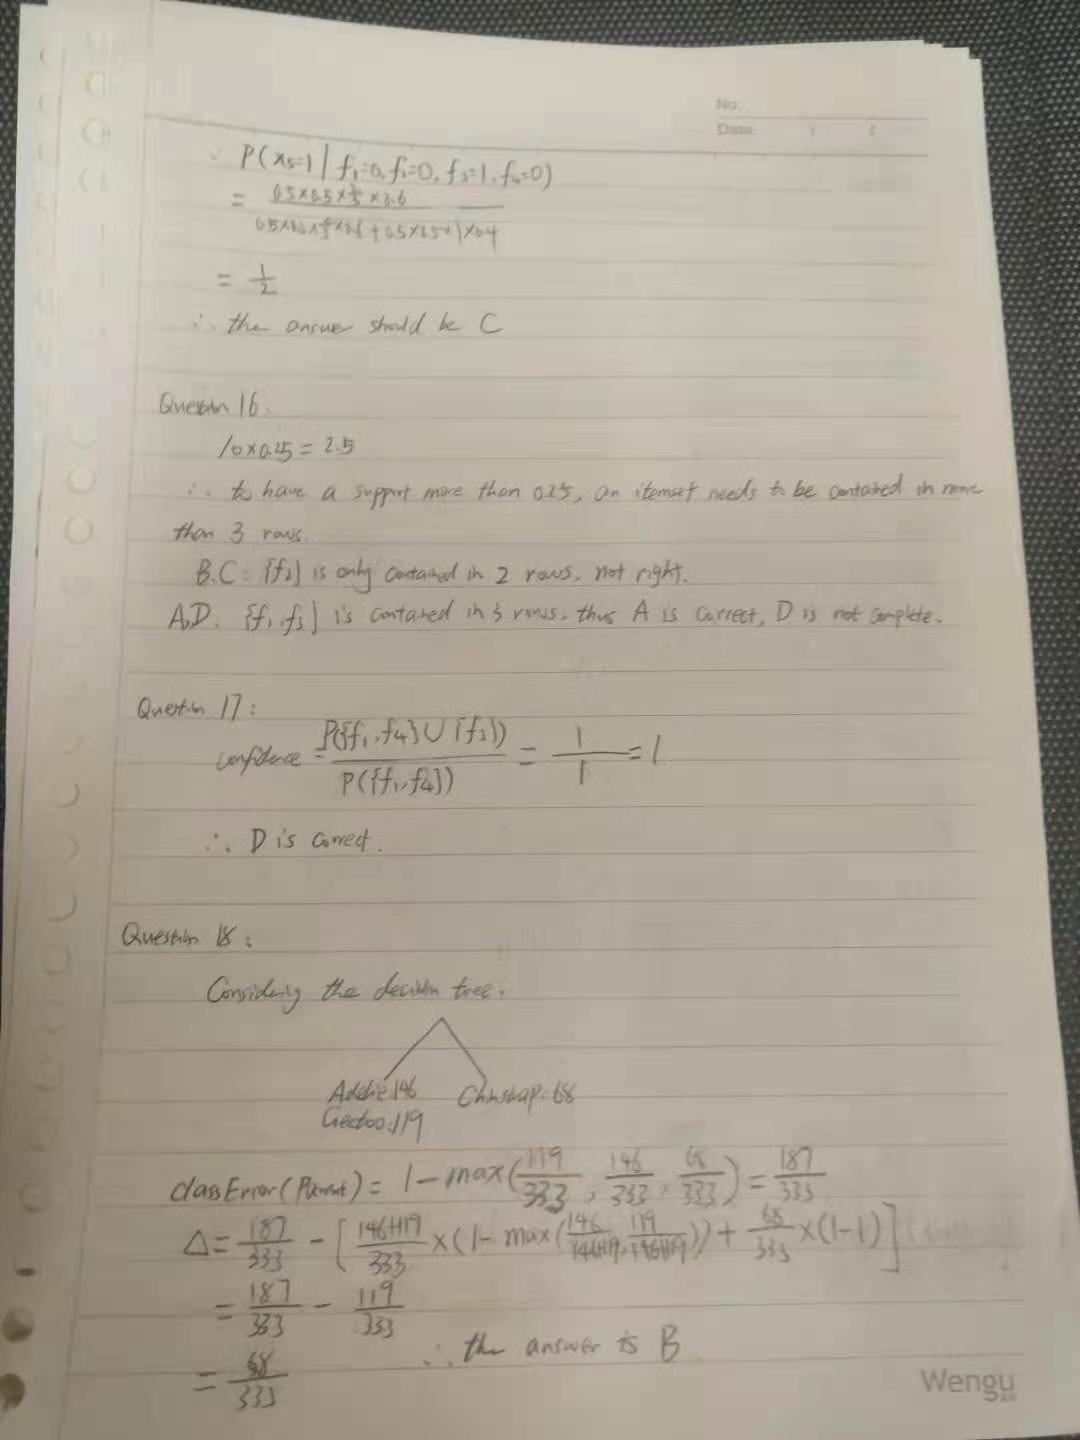 No.
Date
P(x₅=1 | f₁=0, f₂=0, f₃=1, f₄=0)
=
= 1/2
∴ the answer should be C
Question 16:
10×0.25 = 2.5
∴ to have a support more than 0.25, an itemset needs to be contained in more
than 3 rows.
B.C: {f₂} is only contained in 2 rows, not right.
A,D: {f₁, f₃} is contained in 3 rows, thus A is correct, D is not complete.
Question 17:
confidence = P({f₁,f₄}∪{f₂}) / P({f₁,f₄}) = 1/1 = 1
∴ D is correct.
Question 18:
Considering the decision tree.
Adelie:146 Chinstrap:68
Gentoo:119
classError(Parent) = 1-max(119/333, 146/333, 68/333) = 187/333
Δ = 187/333 - [146+119/333 × (1-max(146/146+119, 119/146+119)) + 68/333 × (1-1)]
= 187/333 - 119/333
= 68/333 ∴ the answer is B
Wengu